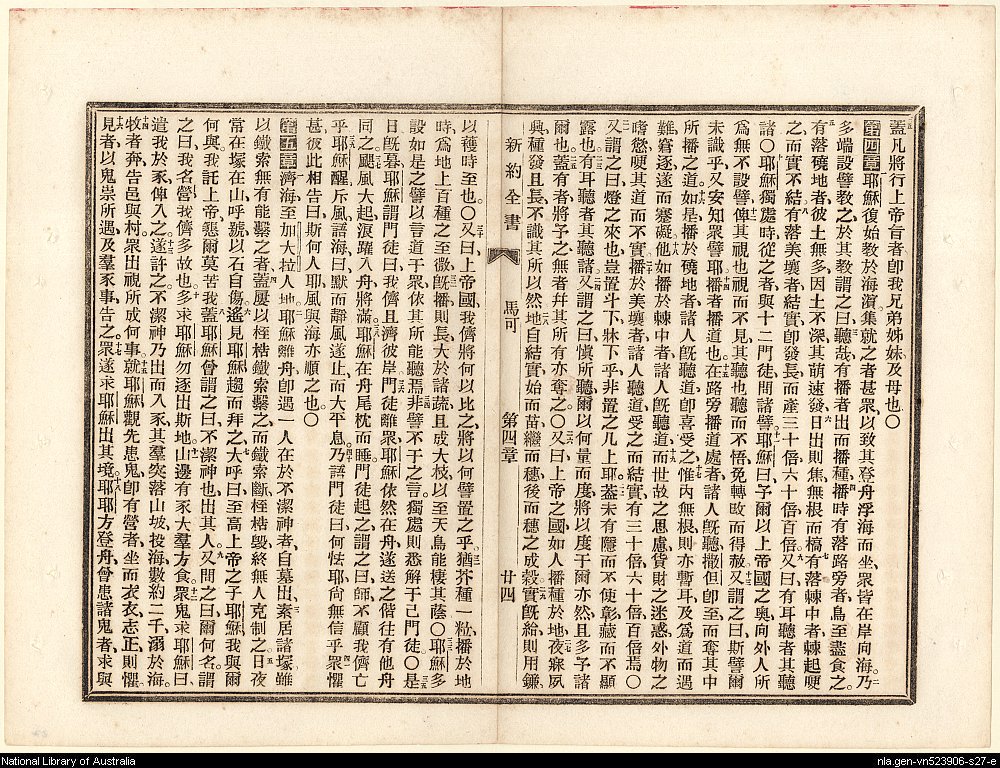 蓋凡將行上帝旨者卽我兄弟姊妹及母也〇
第四章耶穌復始敎於海濱集就之者甚眾以致其登舟浮海而坐眾皆在岸向海乃
多端設譬敎之於其敎謂之曰聽哉有播者出而播種播時有落路旁者鳥至盡食之
有落磽地者彼土無多因土不深其萌速發日出則焦無根而槁有落棘中者棘起哽
之而實不結有落美壤者結實卽發長而產三十倍六十倍百倍又曰有耳聽者其聽
諸〇耶穌獨處時從之者與十二門徒問諸譬耶穌曰予爾以上帝國之奧向外人所
爲無不設譬俾其視也視而不見其聽也聽而不悟免轉攺而得赦又謂之曰斯譬爾
未識乎又安知眾譬耶播者播道也在路旁播道處者諸人旣聽撒但卽至而奪其中
所播之道如是播於磽地者諸人旣聽道卽喜受之惟內無根則亦暫耳及爲道而遇
難窘逐遂而躓礙他如播於棘中者諸人旣聽道而世故之思慮貨財之迷惑外物之
嗜慾哽其道而不實播於美壤者諸人聽道受之而結實有三十倍六十倍百倍焉〇
又謂之曰燈之來也豈置斗下牀下乎非置之几上耶蓋未有隱而不使彰藏而不顯
露也有耳聽者其聽諸又謂之曰愼所聽爾以何量而度將以度于爾亦然且多予諸
爾也蓋有者將予之無者幷其所有亦奪之〇又曰上帝之國如人播種於地夜寐夙
興種發且長不識其所以然地自結實始而苗繼而穗後而穗之成穀實旣給則用鐮
新約全書 馬可 第四章 廿四
以穫時至也〇又曰上帝國我儕將何以比之將以何譬置之乎猶芥種一粒播於地
時爲地上百種之至微旣播則長大於諸蔬且成大枝以至天鳥能棲其蔭〇耶穌多
設如是之譬以言道于眾依其所能聽焉非譬不于之言獨處則悉解于己門徒〇是
日旣暮耶穌謂門徒曰我儕且濟彼岸門徒離眾耶穌依然在舟遂送之偕往有他舟
同之颶風大起浪躍入舟將滿耶穌在舟尾枕而睡門徒起之謂之曰師不顧我儕亡
乎耶穌醒斥風語海曰默而靜風遂止而大平息乃語門徒曰何怯耶尙無信乎眾懼
甚彼此相告曰斯何人耶風與海亦順之也〇
第五章濟海至加大拉人地耶穌離舟卽遇一人在於不潔神者自墓出素居諸塚雖
以鐵索無有能繫之者蓋屢以桎梏鐵索繫之而鐵索斷桎梏毀終無人克制之日夜
常在塚在山呼號以石自傷遙見耶穌趨而拜之大呼曰至高上帝之子耶穌我與爾
何與我託上帝懇爾莫苦我蓋耶穌曾謂之曰不潔神也出其人又問之曰爾何名謂
之曰我名營我儕多故也多求耶穌勿逐出斯地山邊有豕大羣方食眾鬼求耶穌曰
遣我於豕俾入之遂許之不潔神乃出而入豕其羣突落山坡投海數約二千溺於海
牧者奔告邑與村眾出視所成何事就耶穌觀先患鬼卽有營者坐而衣衣志正則懼
見者以鬼祟所遇及羣豕事告之眾遂求耶穌出其境耶穌方登舟曾患諸鬼者求與
National Library of Australia
nla.gen-vn523906-s27-e